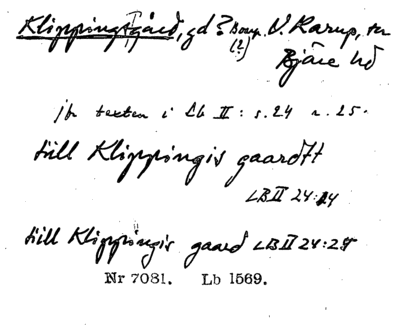 Klippingsgård, gd? Bonp. V. Karup, sn
(?)
Bjäre hd
jfr texten i Lb II: s. 24 r. 25.
till Klippingis gaardtt
LB II 24:24
till Klippingis gaard LB II 24:25
Nr 7081. Lb 1569.